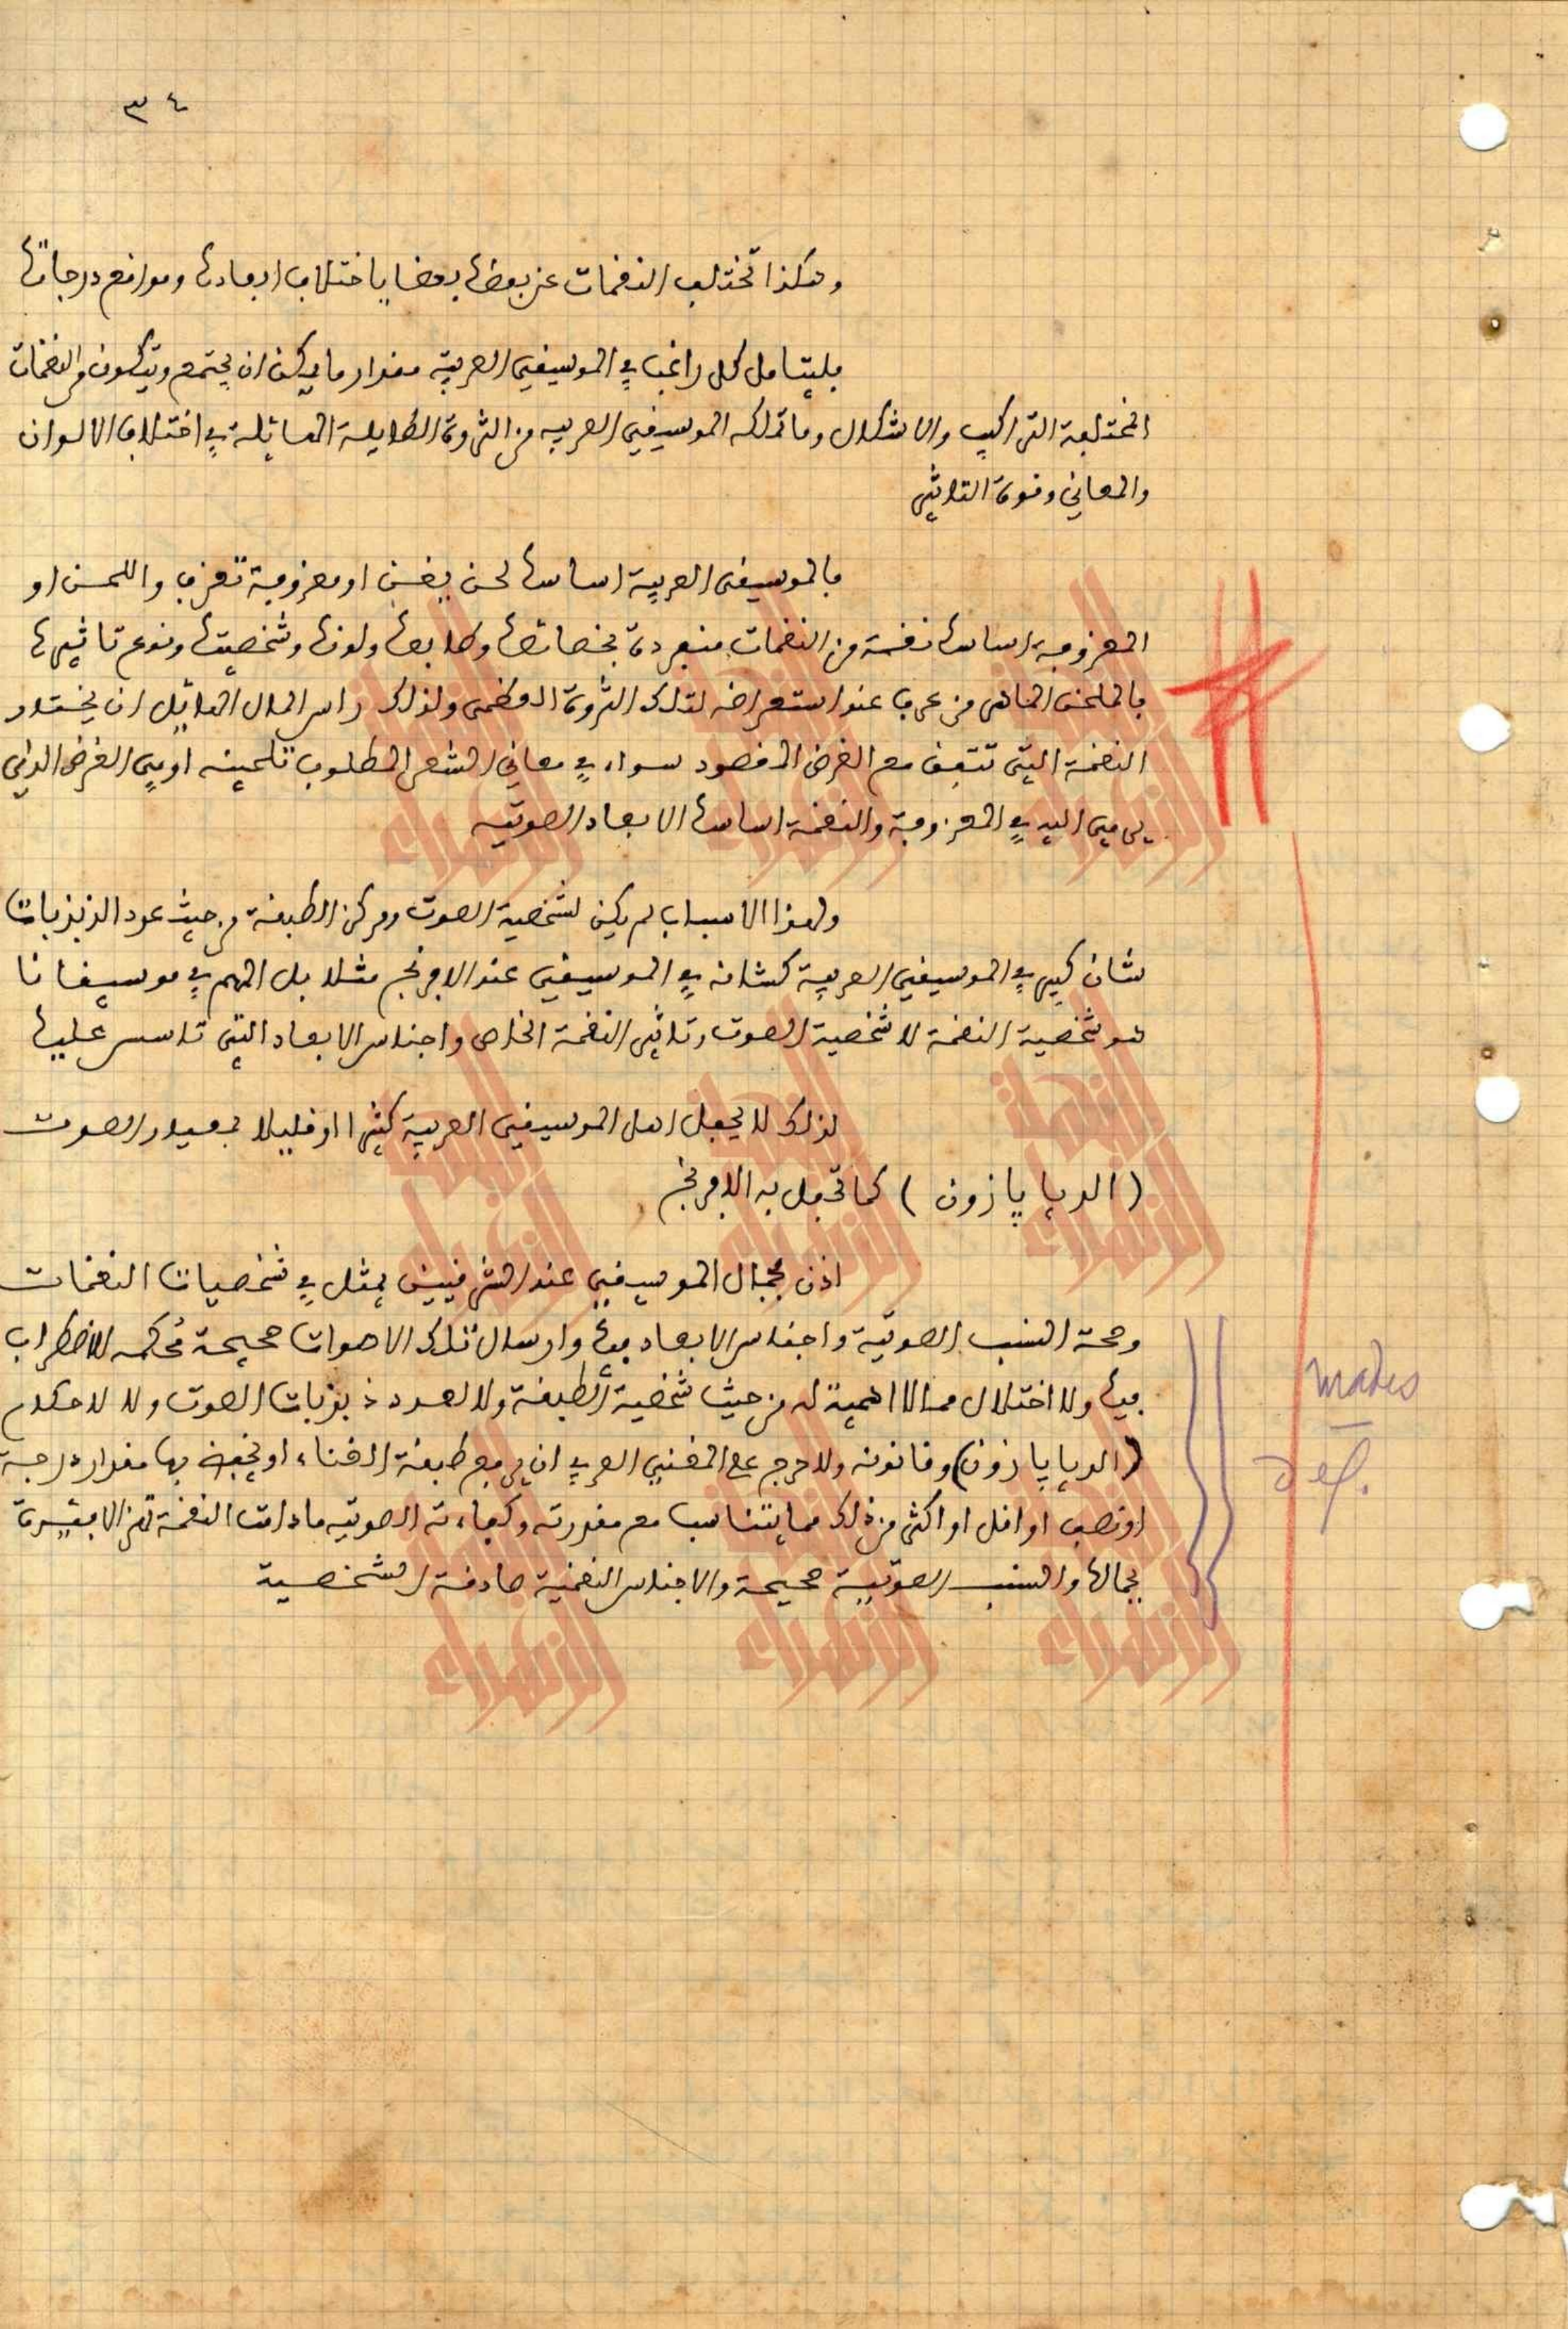 ٣٤
وهكذا تختلف النغمات عن بعضها بعضا باختلاف ابعادها ومواقع درجاتها
فليتامل كل راغب في الموسيقى العربية مقدار ما يمكن ان يجتمع ويتكون من النغمات
المختلفة التراكيب والاشكال وما تملكه الموسيقى العربيه من الثروة الطايلة الهائلة في اختلاف الالوان
والمعاني وقوة التاثير
فالموسيقى العربية اساسها لحن يغنى او معزوفة تعزف واللحن او
المعزوفة اساسها نغمة من النغمات منفردة بخصائصها وطابعها ولونها وشخصيتها ونوع تاثيرها
فالملحن الماهر من عرف عند استعراضه لتلك الثروة العظمى ولذلك راس المال الهائل ان يختار
النغمة التي تتفق مع الغرض المقصود سواء في معاني الشعر المطلوب تلحينه او في الغرض الذي
يرمي اليه في المعزوفة والنغمة اساسها الابعاد الصوتيه
ولهذا الاسباب لم يكن لشخصية الصوت ومركز الطبقة من حيث عدد الذبذبات
شان كبير في الموسيقى العربية كشانه في الموسيقى عند الافرنج مثلا بل المهم في موسيقانا
هو شخصية النغمة لا شخصية الصوت وتاثير النغمة الخاص واجناس الابعاد التي تاسس عليها
لذلك لا يحفل اهل الموسيقى العربية كثيرا او قليلا بمعيار الصوت
(الديابازون) كما تحفل به الافرنج
اذن فجمال الموسيقى عند الشرقيين يمثل في شخصيات النغمات
وصحة النسب الصوتية واجناس الابعاد فيها وارسال تلك الاصوات صحيحة محكمه لا اضطراب
فيها ولا اختلال مما لا اهمية له من حيث شخصية الطبقة ولا لعدد ذبذبات الصوت ولا لاحكام
(الديابازون) وقانونه ولا حرج على المغني العربي ان يرفع طبقة الغناء او يخفضه بها مقدار درجة
او نصف او اقل او اكثر من ذلك مما يتناسب مع مقدرته وكفاءته الصوتيه ما دامت النغمة
بجمالها والنسب الصوتية صحيحة والاجناس النغمية صادقة الشخصية
modes
def.